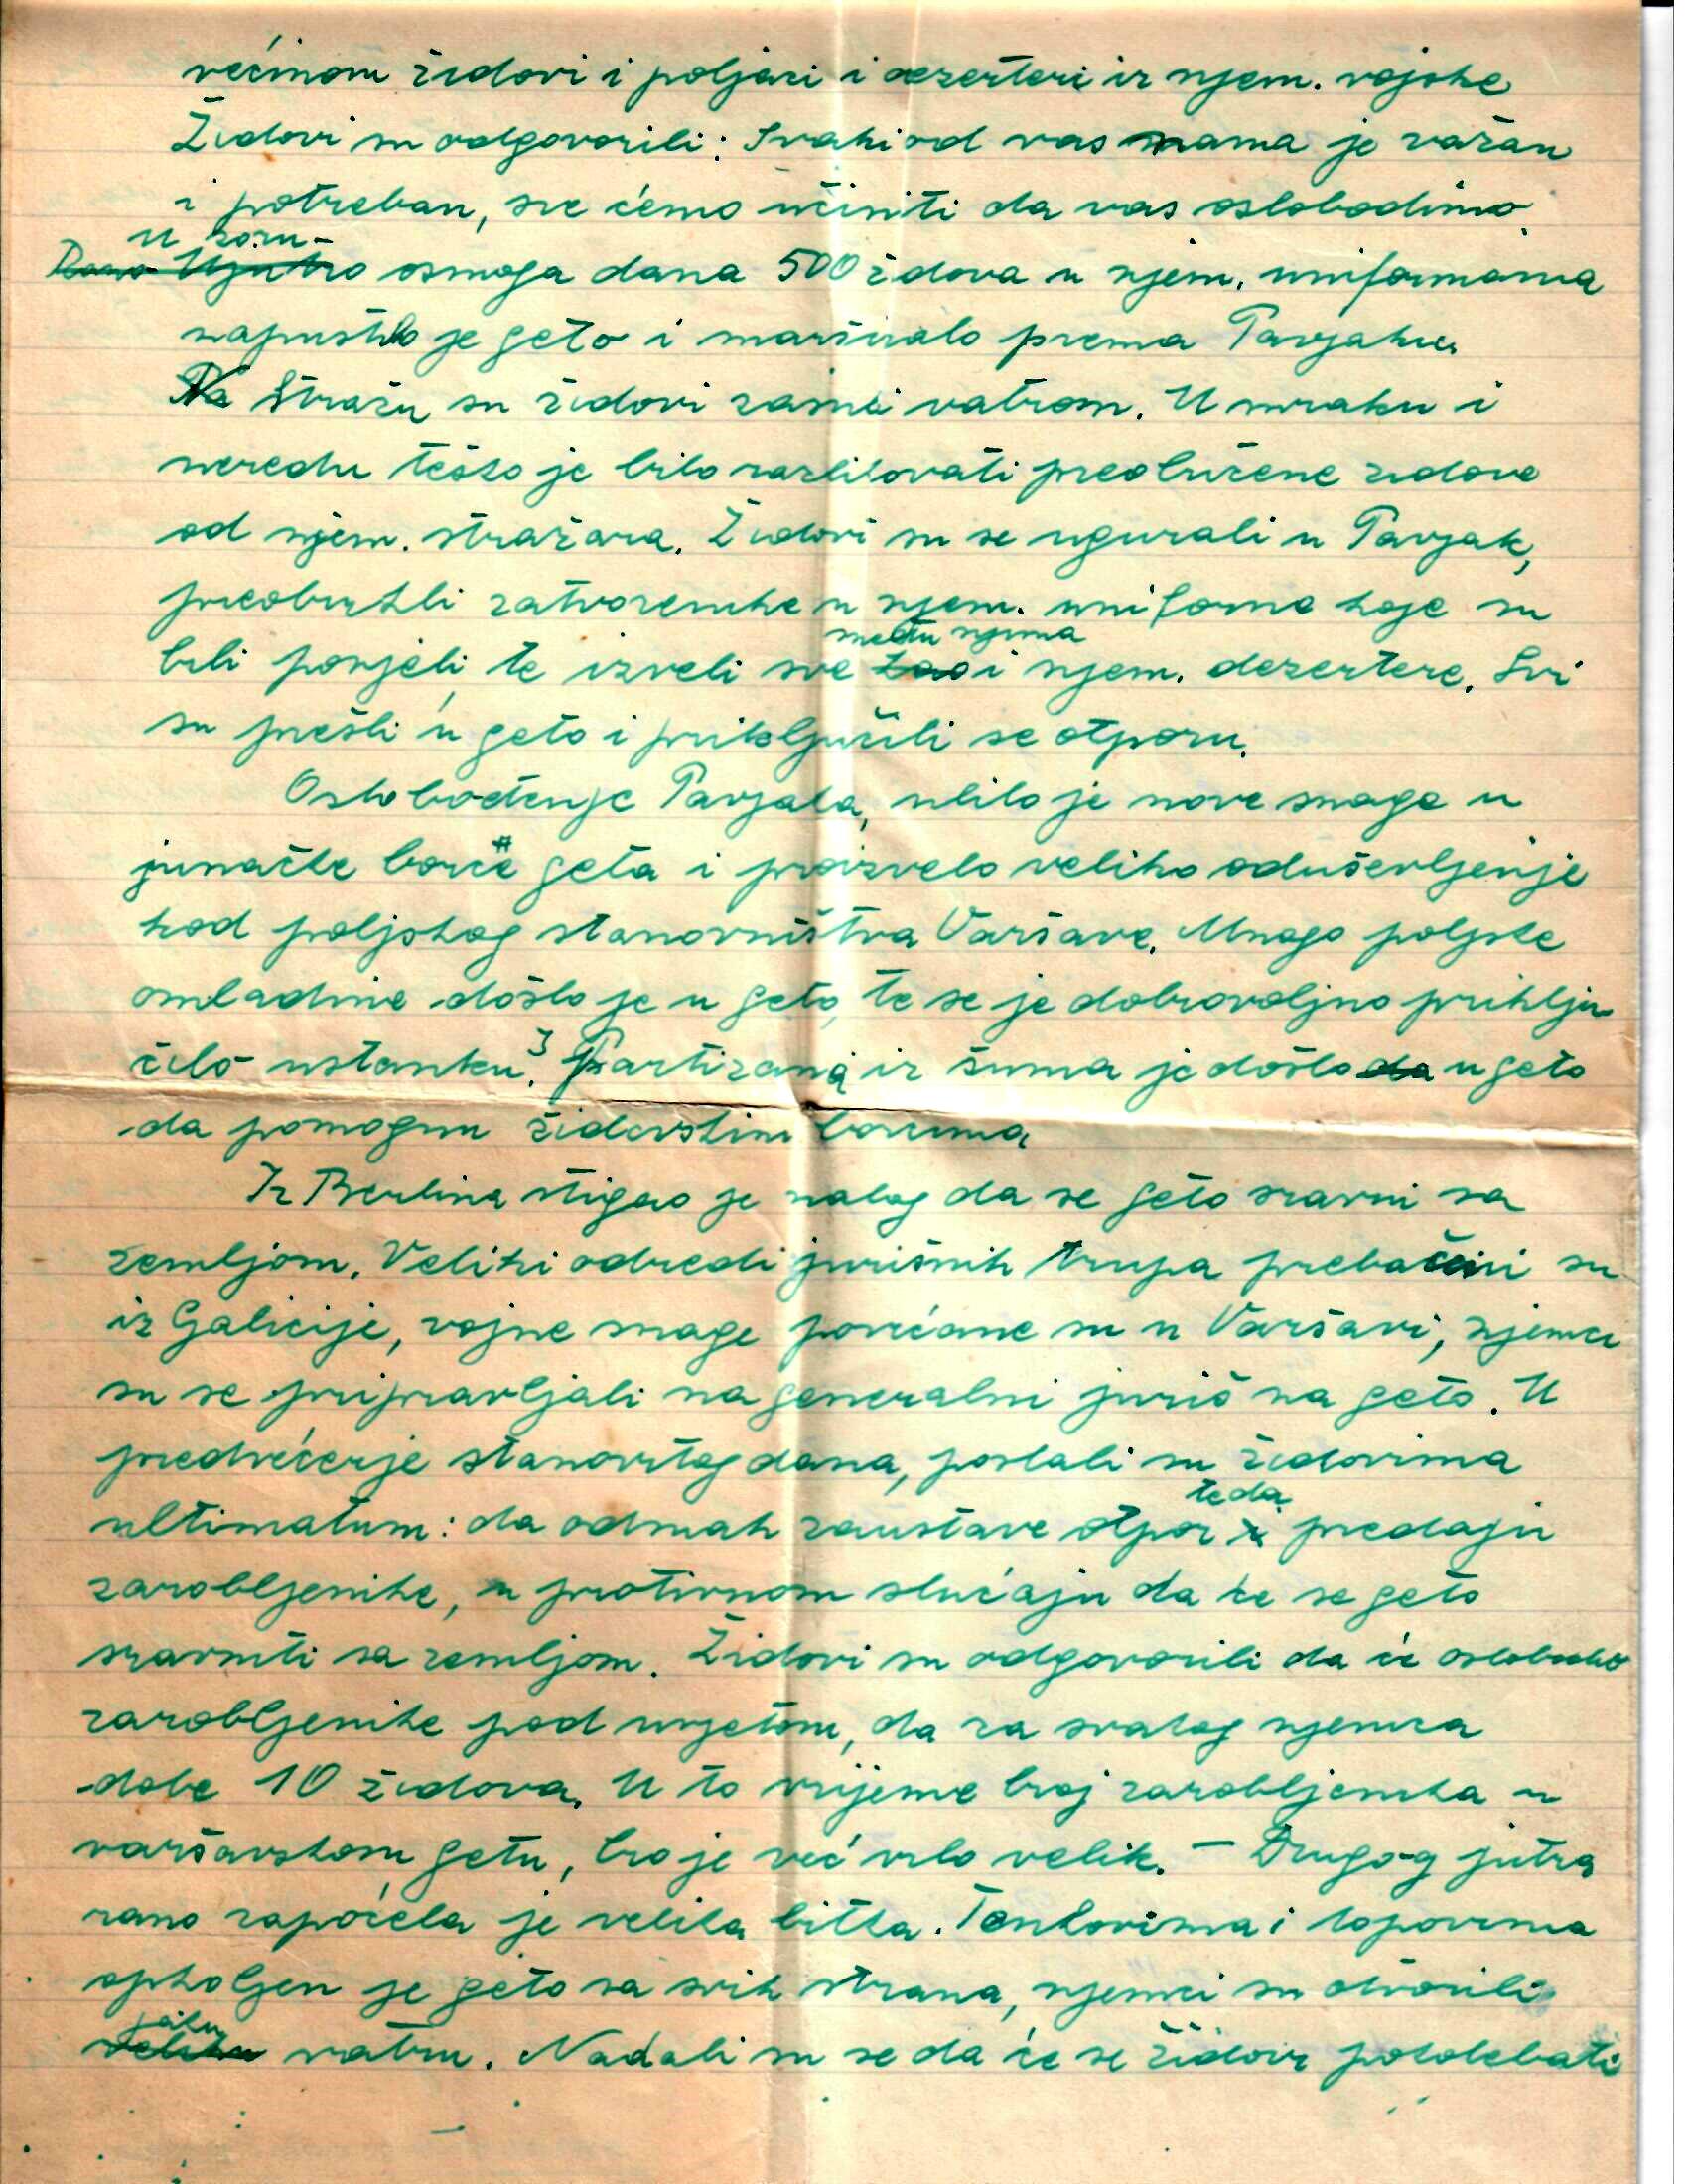 većinom židovi i poljaci i dezerteri iz njem. vojske
Židovi su odgovorili: Svaki od vas nama je važan
i potreban, sve ćemo učiniti da vas oslobodimo.
u zoru
Rano Ujutro osmoga dana 500 židova u njem. uniformama
napustilo je geto i marširalo prema Pavjaku.
Na Stražu su židovi zasuli vatrom. U mraku i
neredu teško je bilo razlikovati preobučene židove
od njem. stražara. Židovi su se ugurali u Pavjak,
preobukli zatvorenike u njem. uniforme koje su
među njima
bili ponjeli, te izveli sve i njem. dezertere. Svi
su prešli u geto i priključili se otporu.
Oslobođenje Pavjaka, ulilo je nove snage u
junačke borce geta i proizvelo veliko oduševljenje
kod poljskog stanovništva Varšave. Mnogo poljske
omladine došlo je u geto, te se je dobrovoljno priklju-
čilo ustanku. I Partizana iz šuma je došlo da u geto
da pomognu židovskim borcima
Iz Berlina stigao je nalog da se geto sravni sa
zemljom. Veliki odredi jurišnih trupa prebačeni su
iz Galicije, vojne snage povećane su u Varšavi, njemci
su se pripravljali na generalni juriš na geto. U
predvečerje stanovitog dana, poslali su židovima
te da
ultimatum: da odmah zaustave otpor i predaju
zarobljenike, u protivnom slučaju da će se geto
sravniti sa zemljom. Židovi su odgovorili da će osloboditi
zarobljenike pod uvjetom, da za svakog njemca
dobe 10 židova. U to vrijeme broj zarobljenika u
varšavskom getu, bio je već vrlo velik. – Drugog jutra
rano započela je velika bitka. Tenkovima i topovima
opkoljen je geto sa svih strana, njemci su otvorili
jaku
veliku vatru. Nadali su se da će se židovi pokolebati